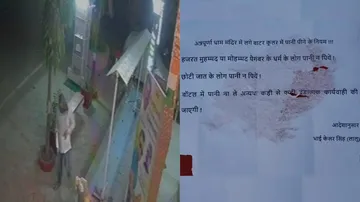 अन्नपूर्णा धाम मंदिर में लगे वाटर कूलर में पानी पीने के नियम ।।
हजरत मुहम्मद या मोहम्मद पैगम्बर के धर्म के लोग पानी न पिये।
छोटी जात के लोग पानी न पिये।
बॉटल में पानी ना ले अन्यथा कड़ी से कड़ी कार्यवाही की
जाएगी।
आदेशानुसार
भाई केसर सिंह